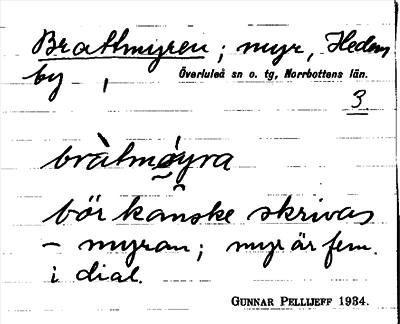 Brattmyren; myr, Hedens
by -,
Överluleå sn o. tg, Norrbottens län.
3.
bràtmøyra
bör kanske skrivas
- myran; myr är fem.
i dial.
GUNNAR PELLIJEFF 1934.